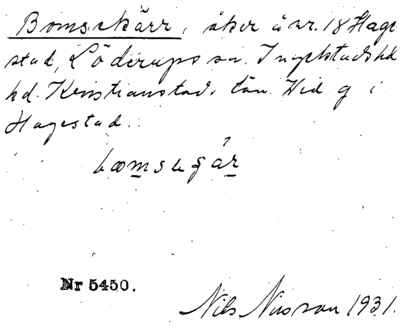 Bomsekärr, åker å nr. 18 Hage-
stad, Löderups sn. Ingelstads hd
hd. Kristianstads län. Vid g i
Hagestad.
Nr 5450.
Nils Nilsson 1931.